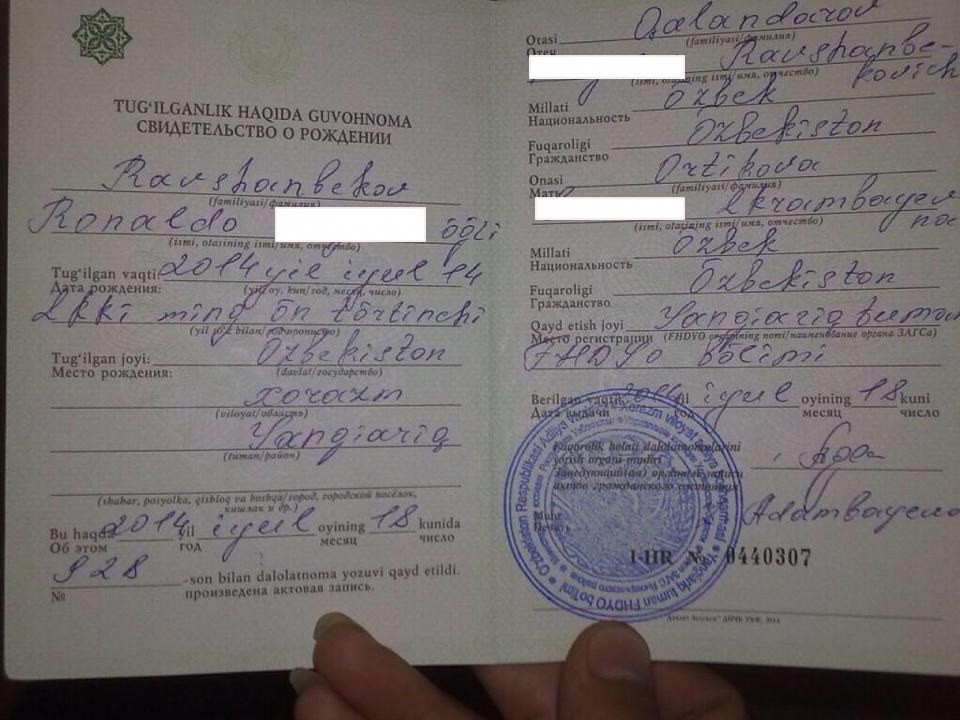 TUG‘ILGANLIK HAQIDA GUVOHNOMA
СВИДЕТЕЛЬСТВО О РОЖДЕНИИ
Ravshanbekov
(familiyasi/фамилия)
Ronaldo õğli
(ismi, otasining ismi/имя, отчество)
Tug‘ilgan vaqti: 2014 yil iyul 14
Дата рождения: (yil, oy, kun/год, месяц, число)
Ikki ming õn tõrtinchi
(yil so‘z bilan/год прописью)
Tug‘ilgan joyi: Õzbekiston
Место рождения: (davlat/государство)
Xorazm
(viloyat/область)
Yangiariq
(tuman/район)
(shahar, posyolka, qishloq va boshqa/город, городской посёлок,
кишлак и др.)
Bu haqda 2014 yil iyul oyining 18 kunida
Об этом год месяц число
928 -son bilan dalolatnoma yozuvi qayd etildi.
№ произведена актовая запись.
Otasi Qalandarov
Отец (familiyasi/фамилия)
Ravshanbe-
kovich
(ismi, otasining ismi/имя, отчество)
Millati õzbek
Национальность
Fuqaroligi Õzbekiston
Гражданство
Onasi Ortikova
Мать (familiyasi/фамилия)
Ikrambayev
na
(ismi, otasining ismi/имя, отчество)
Millati õzbek
Национальность
Fuqaroligi Õzbekiston
Гражданство
Qayd etish joyi Yangiariq tuman
Место регистрации (FHDYO organining nomi/наименование органа ЗАГСа)
FHDYo bõlimi
Berilgan vaqti yil iyul oyining 18 kuni
Дата выдачи год месяц число
Fuqarolik holati dalolatnomalarini
yozish organi mudiri
Заведующий(ая) органом записи
актов гражданского состояния
Muhr
Печать
I-HR № 0440307